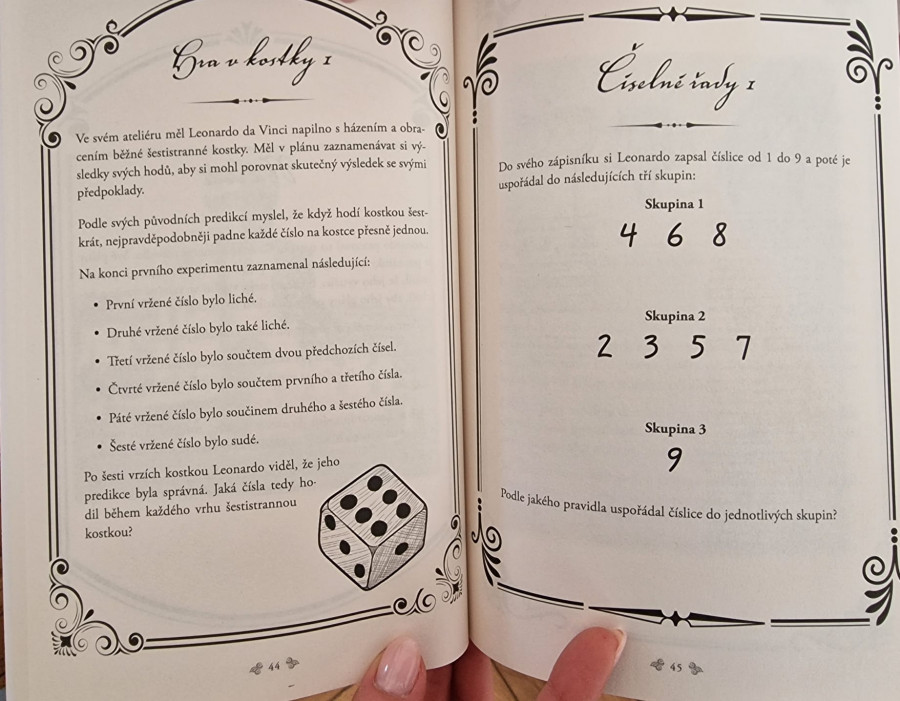 Hra v kostky I
Ve svém ateliéru měl Leonardo da Vinci napilno s házením a obra-
cením běžné šestistranné kostky. Měl v plánu zaznamenávat si vý-
sledky svých hodů, aby si mohl porovnat skutečný výsledek se svými
předpoklady.
Podle svých původních predikcí myslel, že když hodí kostkou šest-
krát, nejpravděpodobněji padne každé číslo na kostce přesně jednou.
Na konci prvního experimentu zaznamenal následující:
• První vržené číslo bylo liché.
• Druhé vržené číslo bylo také liché.
• Třetí vržené číslo bylo součtem dvou předchozích čísel.
• Čtvrté vržené číslo bylo součtem prvního a třetího čísla.
• Páté vržené číslo bylo součinem druhého a šestého čísla.
• Šesté vržené číslo bylo sudé.
Po šesti vrzích kostkou Leonardo viděl, že jeho
predikce byla správná. Jaká čísla tedy ho-
dil během každého vrhu šestistrannou
kostkou?
44
Číselné řady I
Do svého zápisníku si Leonardo zapsal číslice od 1 do 9 a poté je
uspořádal do následujících tří skupin:
Skupina 1
4 6 8
Skupina 2
2 3 5 7
Skupina 3
9
Podle jakého pravidla uspořádal číslice do jednotlivých skupin?
45